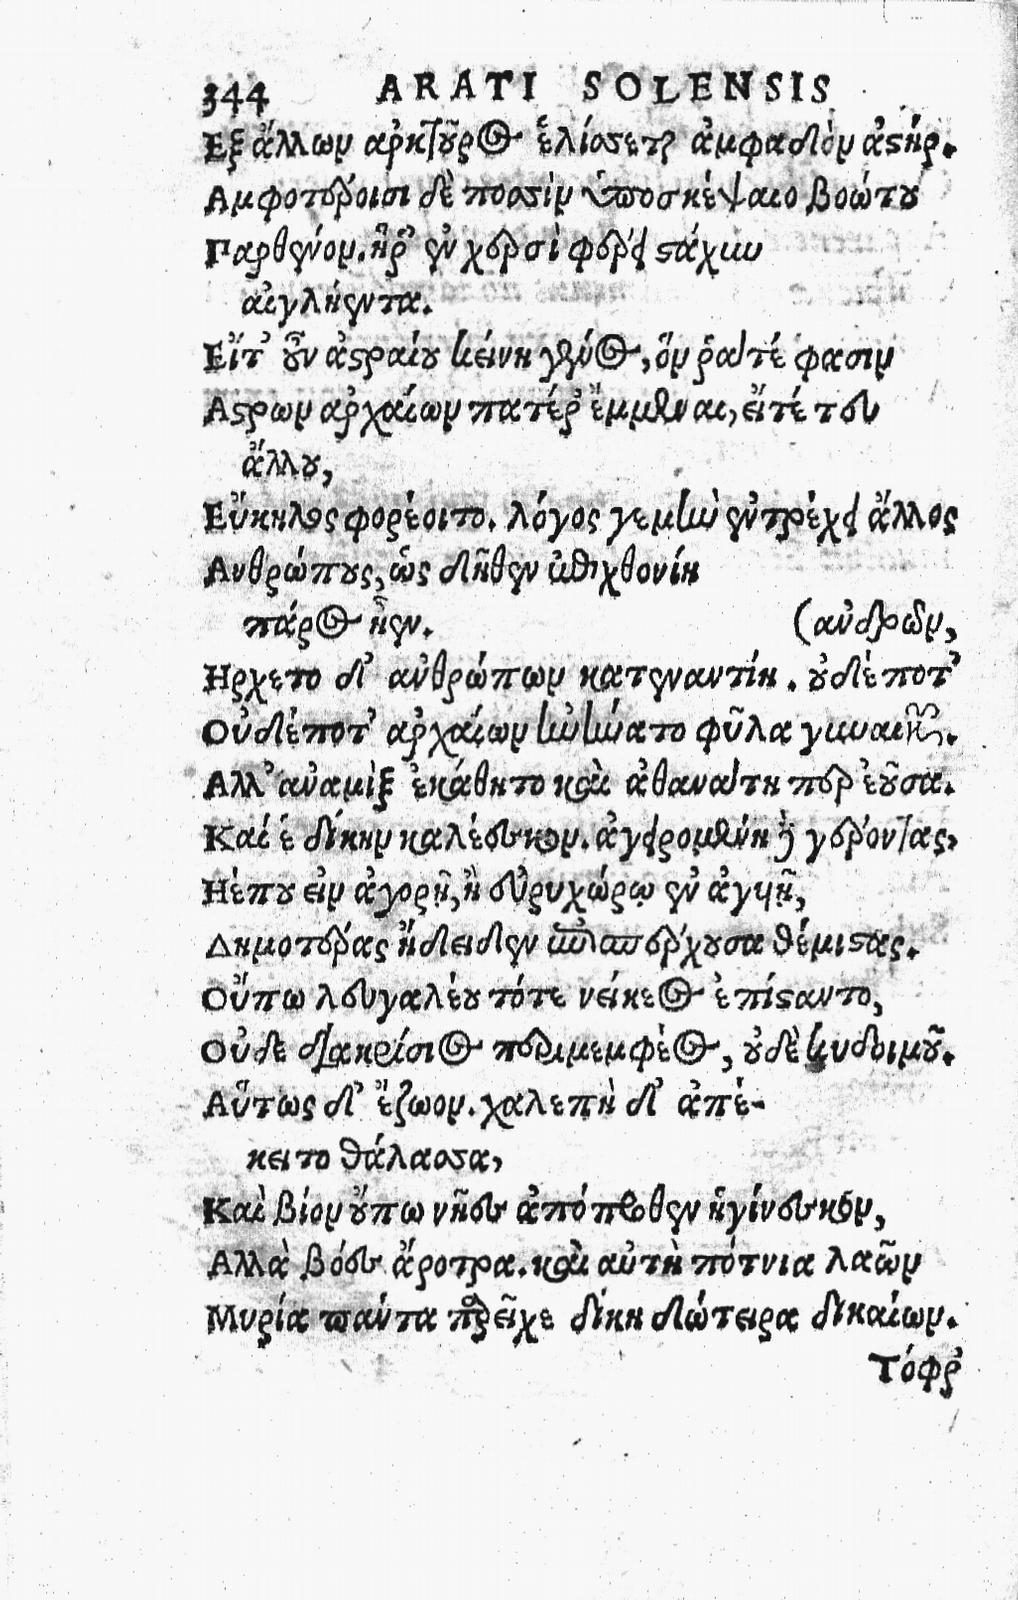 344 ARATI SOLENSIS
Εξ ἄλλων ἀρκτοῦρος ἑλίσσεται ἀμφαδὸν ἀστήρ.
Αμφοτέροισι δὲ ποσσὶν ὑποσκέψαιο βοώτου
Παρθένον. ἥρ' ἐν χερσὶ φέρει στάχυν
αἰγλήεντα.
Εἴτ' οὖν ἀστραίου κείνη γένος, ὅν ῥά τέ φασιν
Αστρων ἀρχαίων πατέρ' ἔμμεναι, εἴτέ τευ
ἄλλου,
Εὔκηλος φορέοιτο. λόγος γεμὴν ἐντρέχει ἄλλος
Ανθρώπους, ὡς δῆθεν ἐπιχθονίη
πάρος ἦεν.
(ἀνδρῶν,
Ηρχετο δ' ἀνθρώπων κατεναντίη. οὐδέποτ'
Οὐδέποτ' ἀρχαίων ἠνήνατο φῦλα γυναικῶν.
Αλλ' ἀναμὶξ ἐκάθητο καὶ ἀθανάτη περ ἐοῦσα.
Καί ἑ δίκην καλέεσκον. ἀγειρομένη δὲ γέροντας,
Ηέ που εἰν ἀγορῇ, ἢ εὐρυχώρῳ ἐν ἀγυιῇ,
Δημοτέρας ἤειδεν ἐπισπέρχουσα θέμιστας.
Οὔπω λευγαλέου τότε νείκεος ἐπίσταντο,
Οὐδε διακρίσιος περιμεμφέος, οὐδὲ κυδοιμοῦ.
Αὕτως δ' ἔζωον. χαλεπὴ δ' ἀπέ-
κειτο θάλασσα,
Καὶ βίον οὔπω νῆες ἀπόπροθεν ἠγίνεσκον,
Αλλὰ βόες ἄροτρα. καὶ αὐτὴ πότνια λαῶν
Μυρία πάντα παρεῖχε δίκη δώτειρα δικαίων.
Τόφρ'